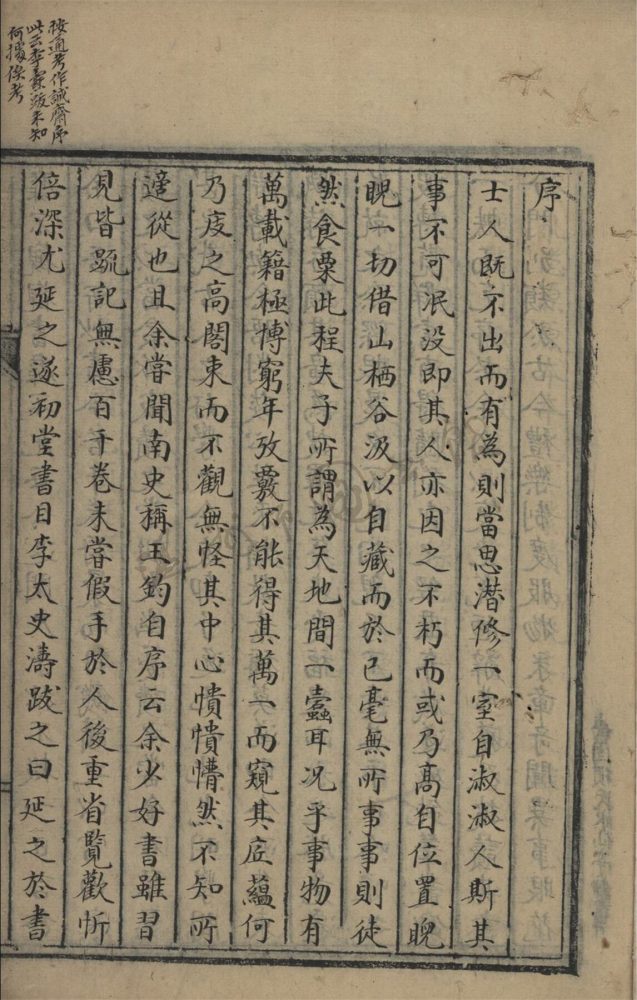 按通考作誠齋序
此云李燾跋未知
何據俟考
序
士人既不出而有為則當思潜修一室自淑淑人斯其
事不可泯没即其人亦因之不朽而或乃高自位置睥
睨一切借山栖谷汲以自藏而於已毫無所事事則徒
然食粟此程夫子所謂為天地間一蠹耳况乎事物有
萬載籍極博窮年攷覈不能得其萬一而窺其底蘊何
乃庋之高閣束而不觀無怪其中心憒憒懵然不知所
適從也且余嘗聞南史稱王鈞自序云余少好書雖習
見皆䟽記無慮百千卷未嘗假手於人後重省覽歡忻
倍深尤延之遂初堂書目李太史濤跋之曰延之於書